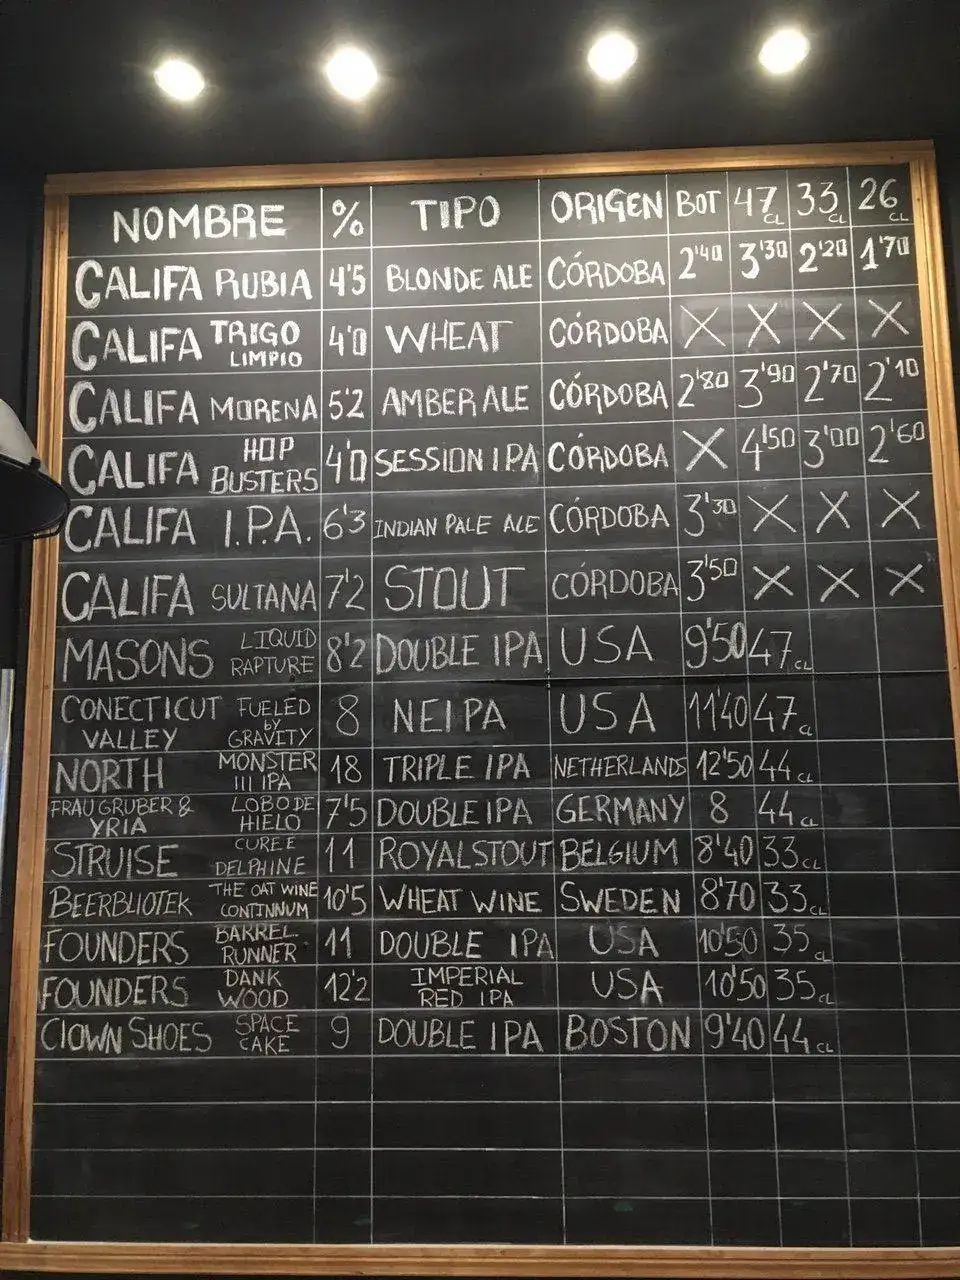 NOMBRE % TIPO ORIGEN BOT 47 CL 33 CL 26 CL
CALIFA RUBIA 4'5 BLONDE ALE CÓRDOBA 2'40 3'30 2'20 1'70
CALIFA TRIGO LIMPIO 4'0 WHEAT CÓRDOBA X X X X
CALIFA MORENA 5'2 AMBER ALE CÓRDOBA 2'80 3'90 2'70 2'10
CALIFA HOP BUSTERS 4'0 SESSION IPA CÓRDOBA X 4'50 3'00 2'60
CALIFA I.P.A. 6'3 INDIAN PALE ALE CÓRDOBA 3'30 X X X
CALIFA SULTANA 7'2 STOUT CÓRDOBA 3'50 X X X
MASONS LIQUID RAPTURE 8'2 DOUBLE IPA USA 9'50 47 CL
CONECTICUT VALLEY FUELED by GRAVITY 8 NEIPA USA 11'40 47 CL
NORTH MONSTER III IPA 18 TRIPLE IPA NETHERLANDS 12'50 44 CL
FRAU GRUBER & YRIA LOBO DE HIELO 7'5 DOUBLE IPA GERMANY 8 44 CL
STRUISE CUREE DELPHINE 11 ROYAL STOUT BELGIUM 8'40 33 CL
BEERBLIOTEK THE OAT WINE CONTINNUM 10'5 WHEAT WINE SWEDEN 8'70 33 CL
FOUNDERS BARREL RUNNER 11 DOUBLE IPA USA 10'50 35 CL
FOUNDERS DANK WOOD 12'2 IMPERIAL RED IPA USA 10'50 35 CL
CLOWN SHOES SPACE CAKE 9 DOUBLE IPA BOSTON 9'40 44 CL